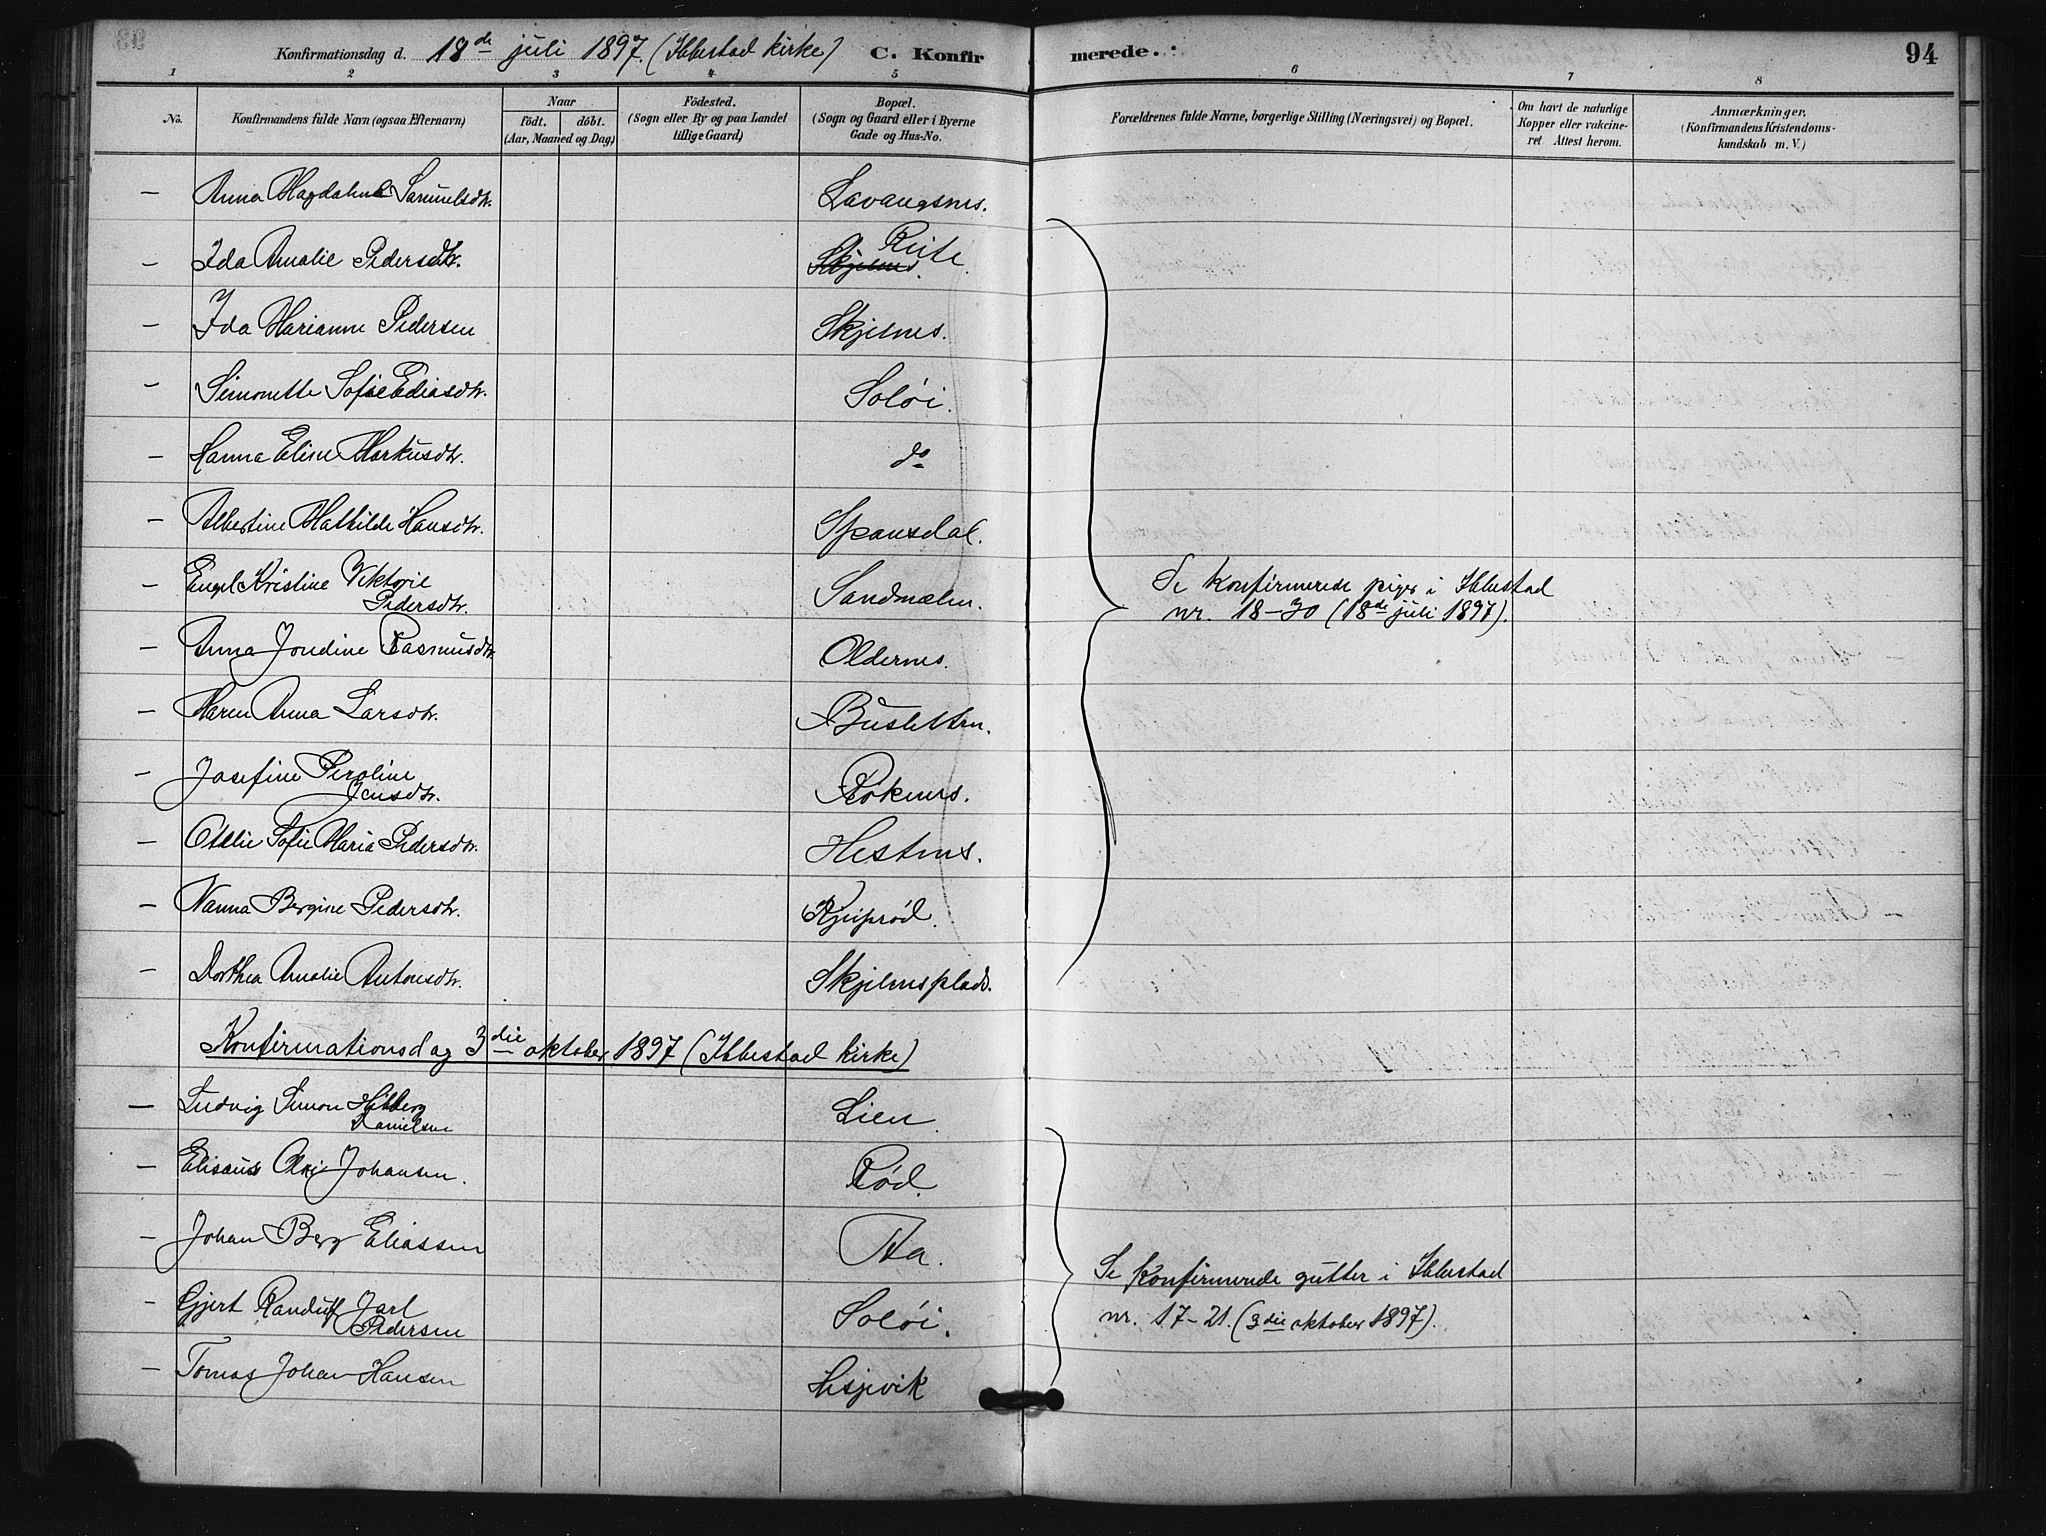 94
Konfirmationsdag d. 18de juli 1897. (Ibbestad kirke) C. Konfirmerede.
1 2 3 4 5 6 7 8
No.
Konfirmandens fulde Navn (ogsaa Efternavn)
Naar
Födt. döbt.
(Aar, Maaned og Dag)
Födested.
(Sogn eller By og paa Landet
tillige Gaard)
Bopæl.
(Sogn og Gaard eller i Byerne
Gade og Hus-No.
Forældrenes fulde Navne, borgerlige Stilling (Næringsvei) og Bopæl.
Om havt de naturlige
Kopper eller vakcine-
ret Attest herom.
Anmærkninger,
(Konfirmandens Kristendoms-
kundskab m. V.)
— Anna Magdalena Samuelsdtr. Lavangsnes.
— Ida Amalie Pedersdtr. Reite. Skjelnes.
— Ida Marianne Pedersen Skjelnes.
— Simonette Sofie Ediasdtr. Soløi.
— Hanna Eline Markusdtr. do
— Albertine Mathilde Hansdtr. Spansdal.
— Engel Kristine Viktorie
Pedersdtr. Sandmælen.
Se konfirmerede piger i Ibbestad
nr. 18–30 (18de juli 1897).
— Anna Jondine Rasmusdtr. Oldernes.
— Maren Anna Larsdtr. Busletten.
— Josefine Peroline
Jensdtr. Røknes.
— Otelie Sofie Maria Pedersdtr. Hestnes.
— Nanna Bergine Pedersdtr. Kjeiprød.
— Dorthea Amalie Antonsdtr. Skjelnesplads.
Konfirmationsdag 3die oktober 1897 (Ibbestad kirke)
— Ludvig Simon Hilberg
Danielsen Lien.
— Elisæus Olai Johansen. Rød.
— Johan Berg Eliassen Aa.
— Gjert Randulf Jarl
Pedersen Soløi.
Se konfirmerede gutter i Ibbestad
nr. 17–21. (3die oktober 1897).
— Tomas Johan Hansen Hesjevik